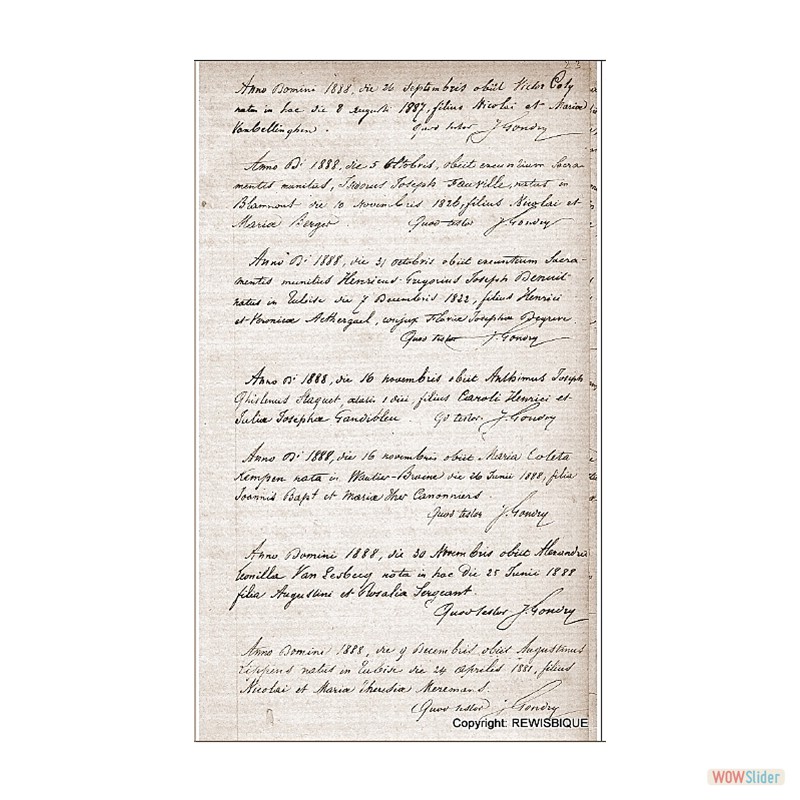 23
Anno Domini 1888, die 26 septembris obiit Victor Coly
natus in hac die 8 augusti 1887, filius Nicolai et Mariæ
Vanbellinghen. Quod testor J. Gondry
Anno Di 1888, die 5 Octobris, obiit Sacra-
mentis munitus, Joseph Fauville, natus in
Blanmont die 10 Novembris 1826, filius Nicolai et
Mariæ Berger. Quod testor J. Gondry
Anno Di 1888, die 31 octobris obiit Sacra-
mentis munitus Henricus Gregorius Joseph Benoit
natus in Tubise die 7 Decembris 1822, filius Henrici
et Veronicæ conjux Floriæ Josephæ
Quod testor J. Gondry
Anno Di 1888, die 16 novembris obiit Anthimus Joseph
Ghislenus Staquet, ætatis 1 diei, filius Caroli Henrici et
Juliæ Josephæ Gandibleu. Qd testor J. Gondry
Anno Di 1888, die 16 novembris obiit Maria Coleta
Kempen nata in Wautier-Braine die 26 Junii 1888, filia
Joannis Bapt et Mariæ Ther Canonniers.
Quod testor J. Gondry
Anno Domini 1888, die 30 Novembris obiit
Leonilla Van nata in hac Die 25 Junii 1888
filia Augustini et Rosalia Sergeant.
Quod testor J. Gondry
Anno Domini 1888, die 9 Decembris obiit Augustinus
Lippens natus in Tubise die 24 aprilis 1881, filius
Nicolai et Mariæ Theresiæ Meremans.
Quod testor J. Gondry
Copyright: REWISBIQUE
WOWSlider